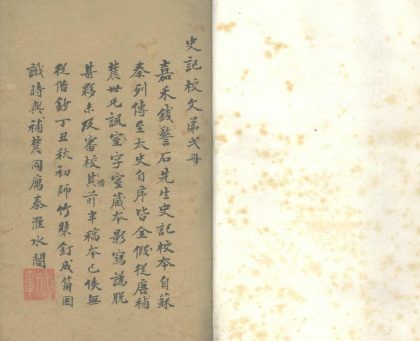 史記校文弟弍冊
嘉禾錢警石先生史記校本自蘇
秦列傳至太史自序皆全假從唐補
農世兄諷字室藏本影寫譌脫
甚夥未及審校其前半稿本已佚無
從借鈔丁丑秋初師竹裝釘成葍因
識時與補農同寓秦淮水閣